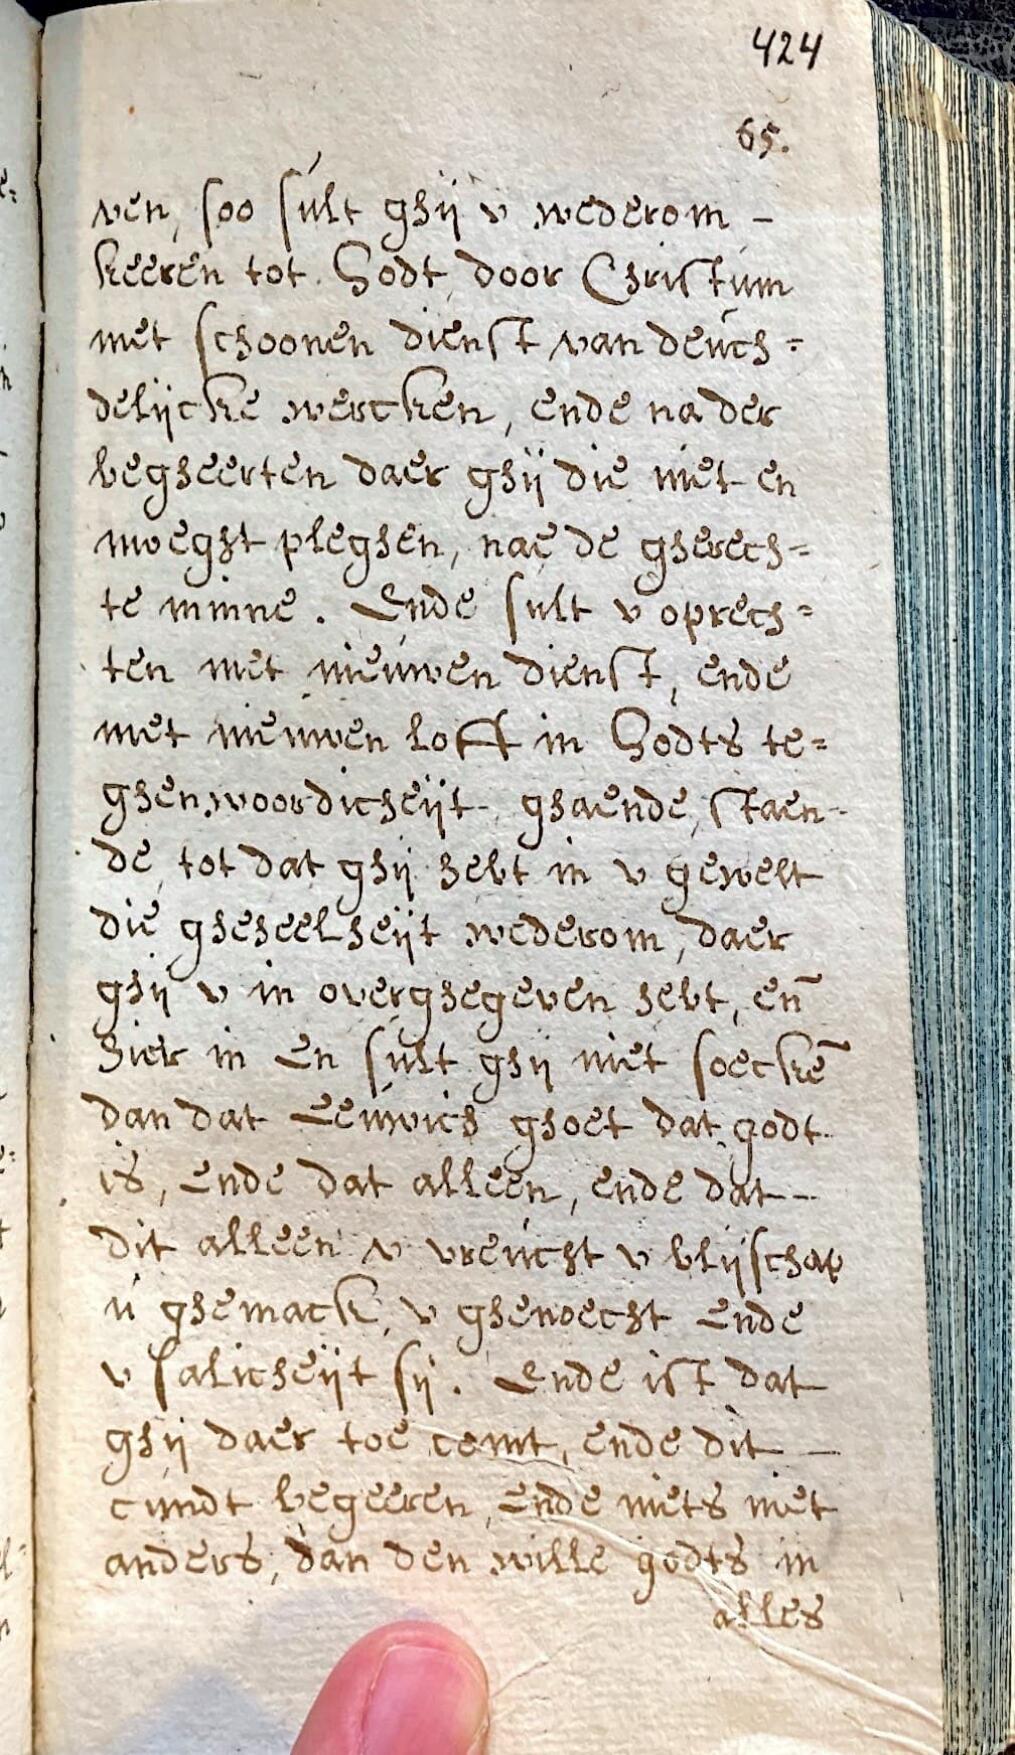 424
65.
ven, soo sult ghij v wederom -
keeren tot Godt door Christum
met schoonen dienst van deuch=
delijcke wercken, ende na der
begheerten daer ghij die niet en
moeght pleghen, nae de gherech=
te minne. Ende sult v oprech=
ten met nieuwen dienst, ende
met nieuwen loff in Godts te=
ghenwoordicheijt ghaende, staen-
de, tot dat ghij hebt in v gewelt
die gheheelheijt wederom, daer
ghij v in overghegeven hebt, en̄
hier in en sult ghij niet soeckē
dan dat Eewich ghoet dat godt
is, ende dat alleen, ende dat -
dit alleen v vreucht v blijschap
u ghemack, v ghenoecht ende
v salicheijt sij. Ende ist dat
ghij daer toe comt, ende dit -
cundt begeeren, ende niets niet
anders, dan den wille godts in
alles